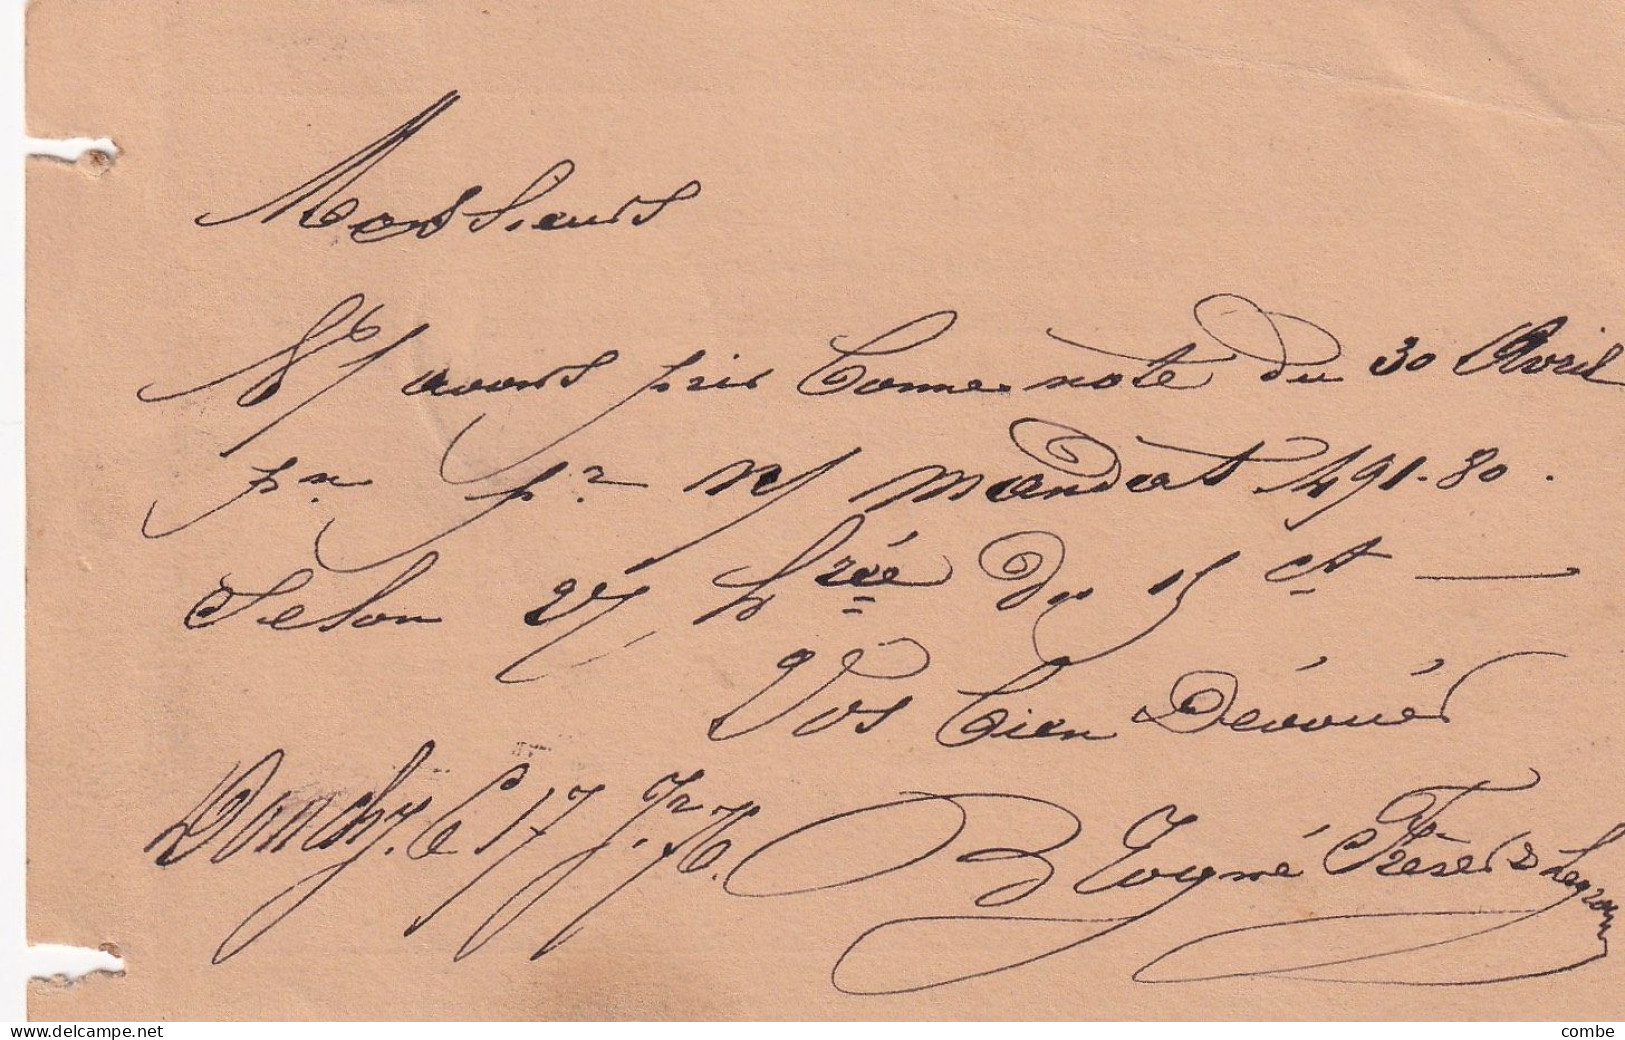 Messieurs
N/ avons pris bonne note du 30 Avril
pn pr n/ mandat 491.80.
Selon v/ hrée du 15 ct —
Vos bien Dévoués
Donchy, le 17 Jr 76.
Gogné Frères & Legros
www.delcampe.net
combe